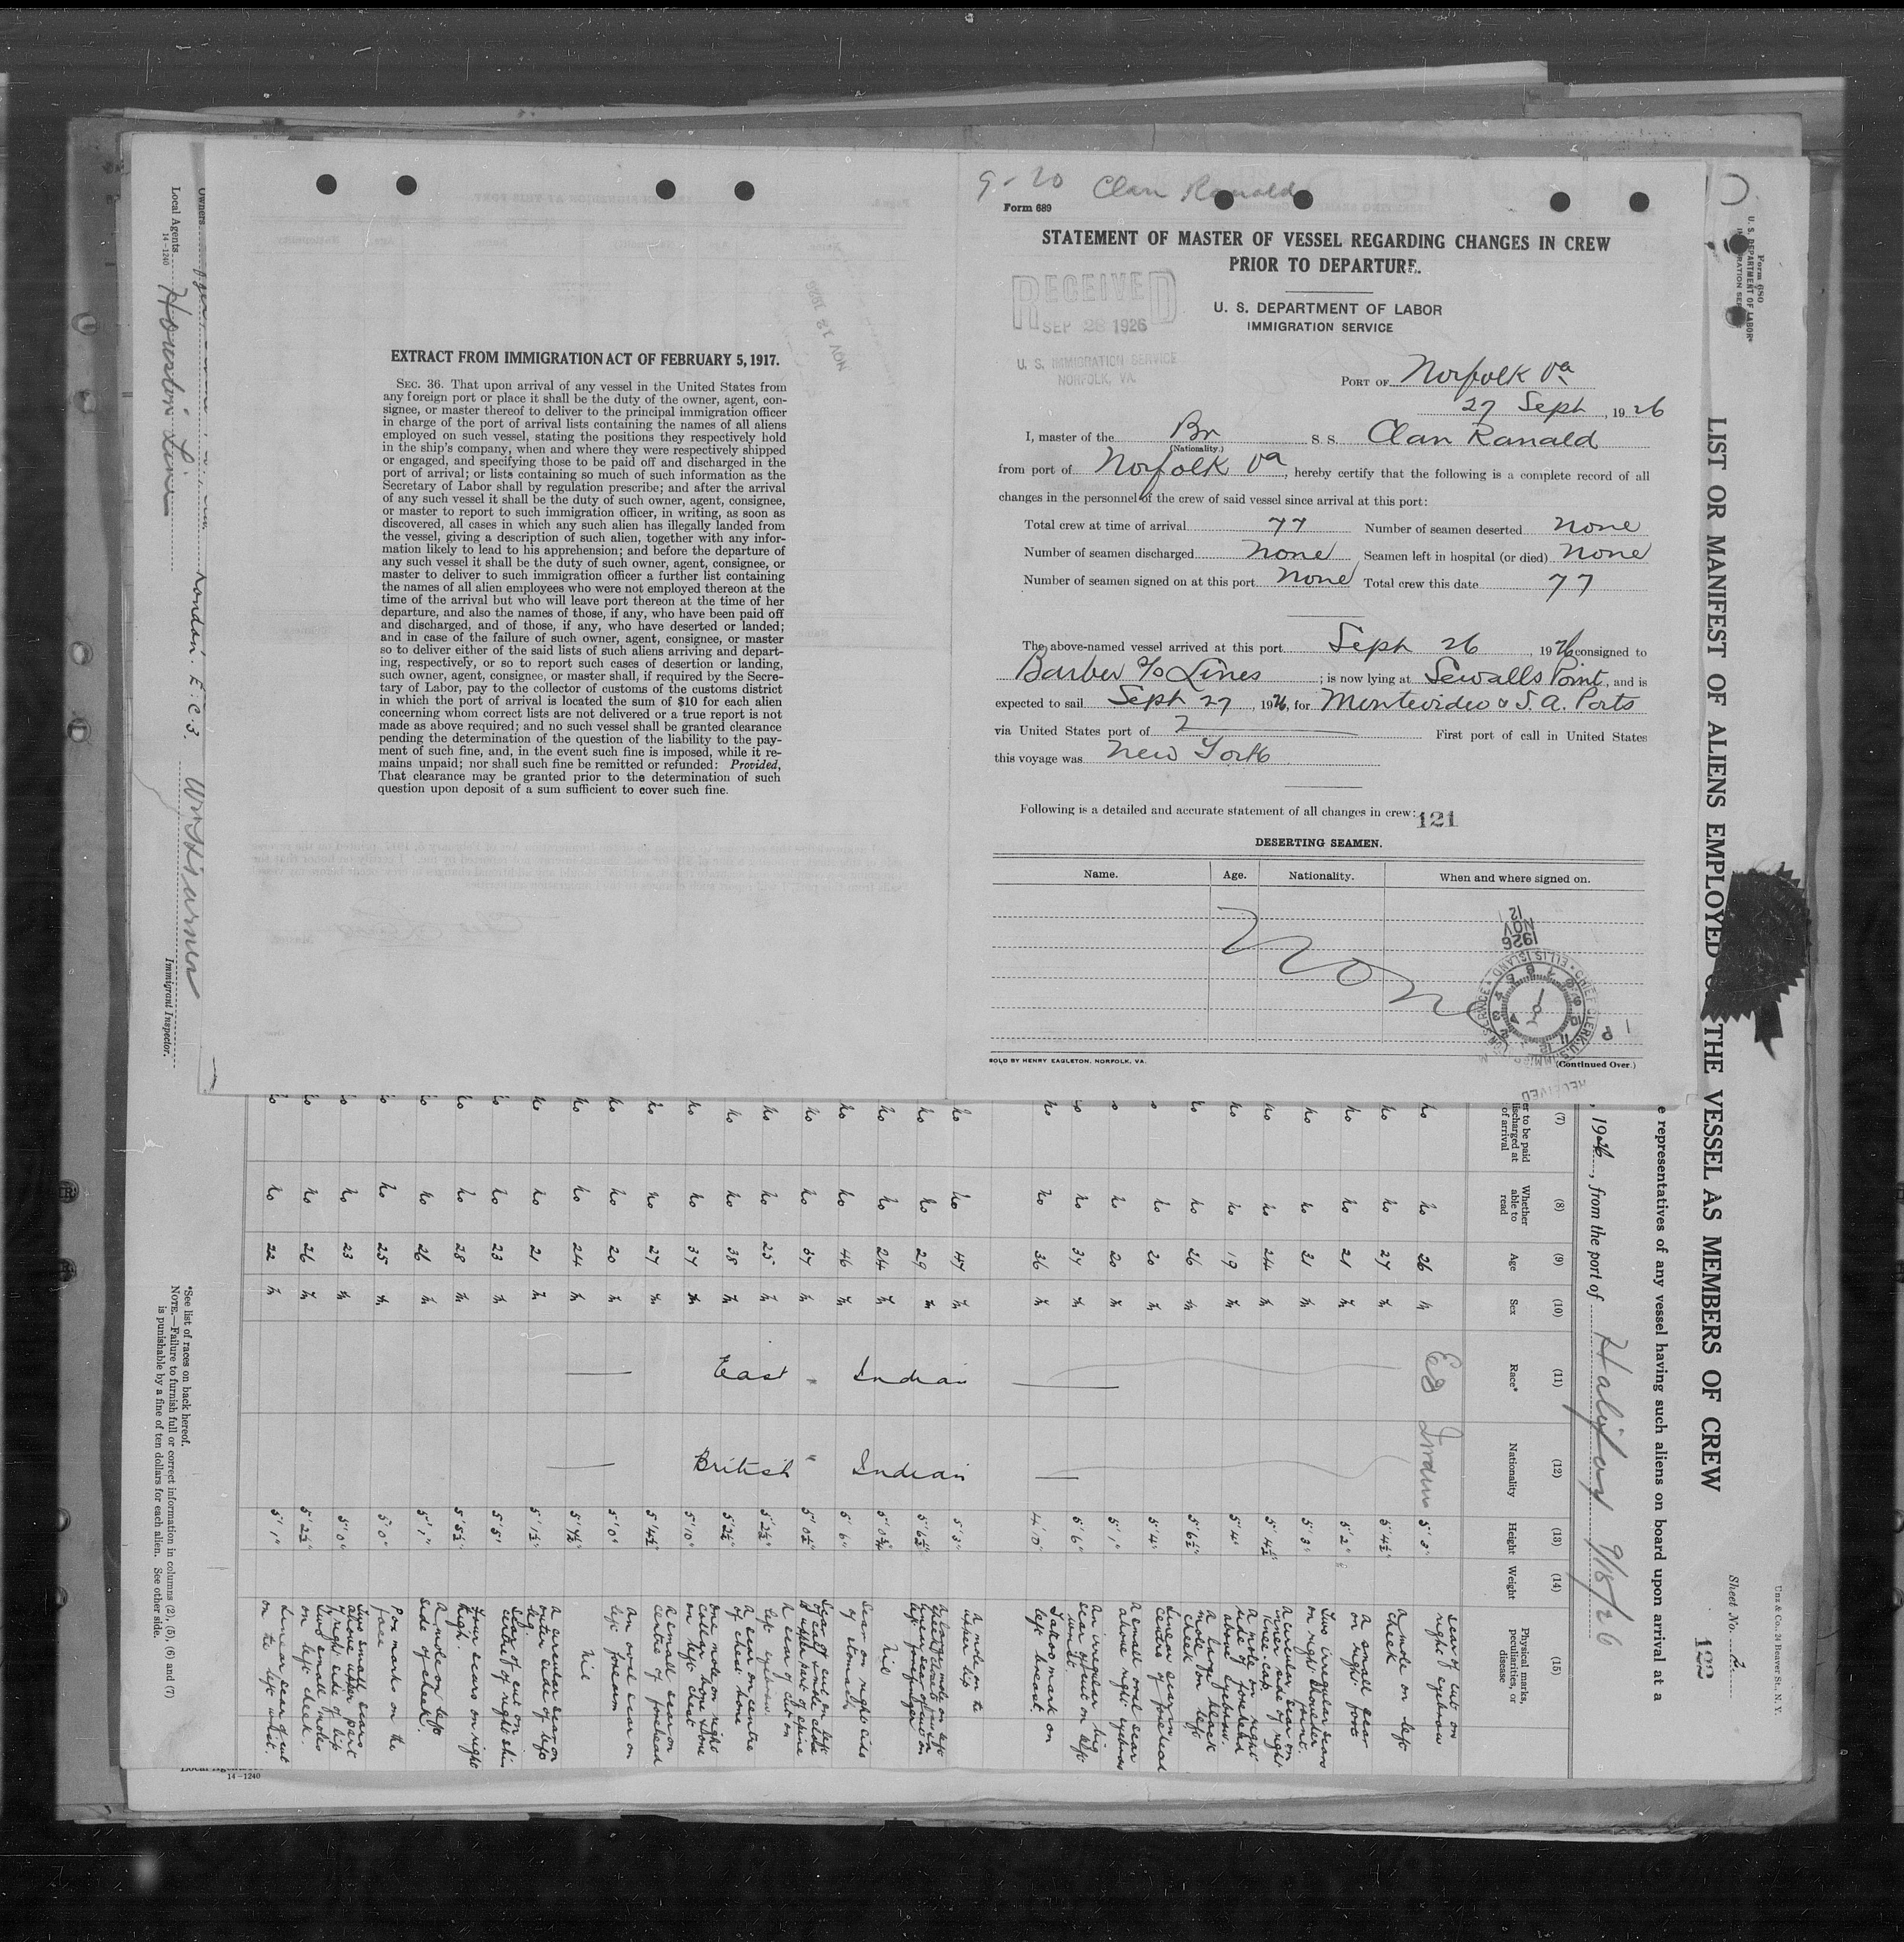 9-20 Clan Ranald
Form 689
STATEMENT OF MASTER OF VESSEL REGARDING CHANGES IN CREW
PRIOR TO DEPARTURE.
RECEIVED
SEP 26 1926
U. S. IMMIGRATION SERVICE
NORFOLK, VA.
U. S. DEPARTMENT OF LABOR
IMMIGRATION SERVICE
PORT OF Norfolk Va
27 Sept, 1926
I, master of the Br S. S. Clan Ranald
(Nationality.)
from port of Norfolk Va, hereby certify that the following is a complete record of all
changes in the personnel of the crew of said vessel since arrival at this port:
Total crew at time of arrival 77 Number of seamen deserted none
Number of seamen discharged none Seamen left in hospital (or died) none
Number of seamen signed on at this port none Total crew this date 77
The above-named vessel arrived at this port Sept 26, 1926 consigned to
Barber S/S Lines; is now lying at Sewalls Point, and is
expected to sail Sept 27, 1926, for Montevideo & S. A. Ports
via United States port of First port of call in United States
this voyage was New York
Following is a detailed and accurate statement of all changes in crew:
121
DESERTING SEAMEN.
Name. Age. Nationality. When and where signed on.
12
NOV
1926
SOLD BY HENRY EAGLETON, NORFOLK, VA.
(Continued Over.)
EXTRACT FROM IMMIGRATION ACT OF FEBRUARY 5, 1917.
SEC. 36. That upon arrival of any vessel in the United States from
any foreign port or place it shall be the duty of the owner, agent, con-
signee, or master thereof to deliver to the principal immigration officer
in charge of the port of arrival lists containing the names of all aliens
employed on such vessel, stating the positions they respectively hold
in the ship's company, when and where they were respectively shipped
or engaged, and specifying those to be paid off and discharged in the
port of arrival; or lists containing so much of such information as the
Secretary of Labor shall by regulation prescribe; and after the arrival
of any such vessel it shall be the duty of such owner, agent, consignee,
or master to report to such immigration officer, in writing, as soon as
discovered, all cases in which any such alien has illegally landed from
the vessel, giving a description of such alien, together with any infor-
mation likely to lead to his apprehension; and before the departure of
any such vessel it shall be the duty of such owner, agent, consignee, or
master to deliver to such immigration officer a further list containing
the names of all alien employees who were not employed thereon at the
time of the arrival but who will leave port thereon at the time of her
departure, and also the names of those, if any, who have been paid off
and discharged, and of those, if any, who have deserted or landed;
and in case of the failure of such owner, agent, consignee, or master
so to deliver either of the said lists of such aliens arriving and depart-
ing, respectively, or so to report such cases of desertion or landing,
such owner, agent, consignee, or master shall, if required by the Secre-
tary of Labor, pay to the collector of customs of the customs district
in which the port of arrival is located the sum of $10 for each alien
concerning whom correct lists are not delivered or a true report is not
made as above required; and no such vessel shall be granted clearance
pending the determination of the question of the liability to the pay-
ment of such fine, and, in the event such fine is imposed, while it re-
mains unpaid; nor shall such fine be remitted or refunded: Provided,
That clearance may be granted prior to the determination of such
question upon deposit of a sum sufficient to cover such fine.
NOV 12 1926
Form 680
U. S. DEPARTMENT OF LABOR
LIST OR MANIFEST OF ALIENS EMPLOYED THE VESSEL AS MEMBERS OF CREW
Sheet No. 2
122
Unz & Co., 24 Beaver St., N. Y.
e representatives of any vessel having such aliens on board upon arrival at a
, 1926, from the port of Halifax 9/18/26
(7) (8) (9) (10) (11) (12) (13) (14) (15)
er to be paid discharged at of arrival
Whether able to read
Age
Sex
Race*
Nationality
Height
Weight
Physical marks, peculiarities, or disease
no no 26 m 5' 3" scar of cut on right eyebrow
no no 27 m 5' 4½" A mole on left cheek
no no 21 m 5' 2" A small scar on right foot
no no 21 m 5' 3" Two irregular scars on right shoulder joint.
no no 24 m 5' 4½" A circular scar on inner side of right knee-cap.
no no 19 m 5' 4" A mole on right side of forehead above eyebrow.
no no 26 m 5' 6½" A large black mole on left cheek
no no 20 m 5' 4" Linear scar in centre of forehead
no no 20 m 5' 1" A small oval scar above right eyebrow
no no 37 m 5' 6" An irregular big scar of cut on left
no no 36 m 4' 10" Tattoo mark on left breast.
no no 47 m 5' 3" A mole on the upper lip
no no 29 m 5' 6½"
no no 24 m 5' 0¾" Nil
no no 46 m 5' 6" Scar on right side of stomach
no no 37 m 5' 0½"
no no 25 m 5' 2½" A scar of cut on left eyebrow.
no no 38 m 5' 2½" A scar on centre of chest bone
no no 37 m 5' 10" One mole on right collar bone & one on left chest
no no 27 m 5' 4½" A small scar on centre of forehead
no no 20 m 5' 0" An oval scar on left forearm
no no 24 m 5' 7½" Nil
no no 21 m 5' 1½" A circular scar on outer side of left leg.
no no 23 m 5' 5" Scar of cut on centre of right shin
no no 28 m 5' 5½" Four scars on right thigh.
no no 26 m 5' 1" A mole on left side of cheek.
no no 25 m 5' 0" Pox marks on the face
no no 23 m 5' 0" Two small scars above upper part of right side of lip
no no 26 m 5' 2½" Two small moles on left cheek.
no no 22 m 5' 1" Linear scar of cut on the left wrist.
East Indian
British Indian
*See list of races on back hereof.
NOTE.—Failure to furnish full or correct information in columns (2), (5), (6) and (7)
is punishable by a fine of ten dollars for each alien. See other side.
Owners London. E. C. 3.
Local Agents Houston Line
14-1240
Immigrant Inspector.
14-1240